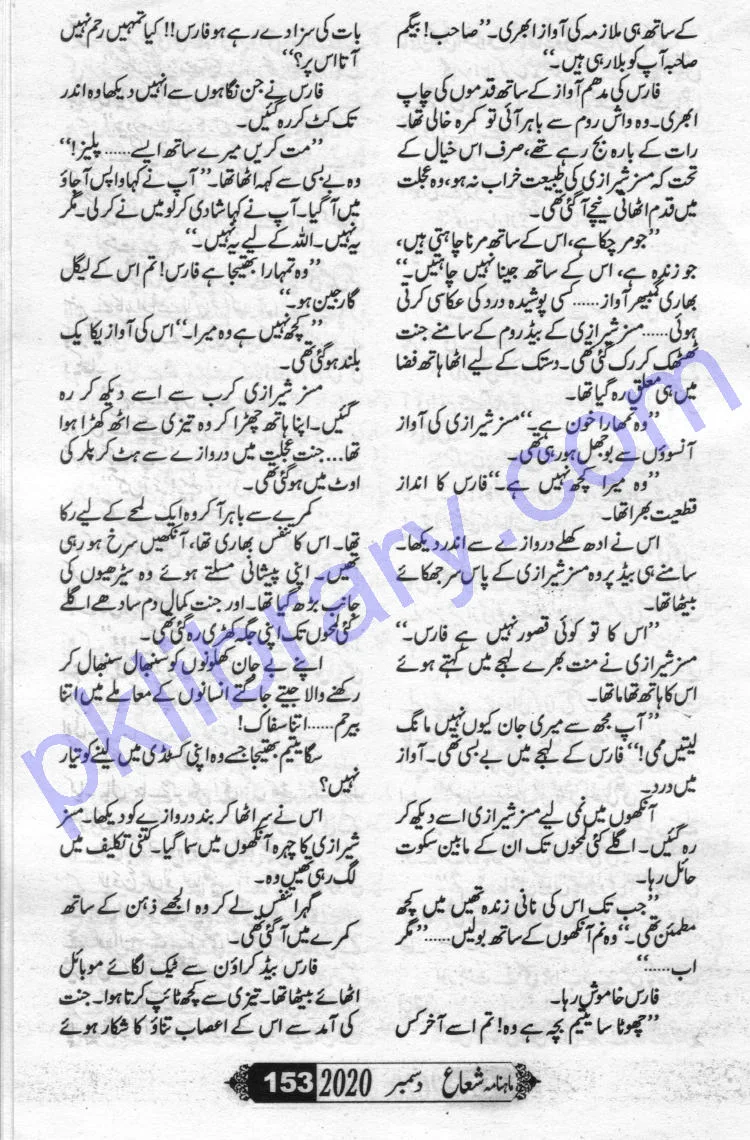 کے ساتھ ہی ملازمہ کی آواز ابھری۔ ”صاحب! بیگم
صاحبہ آپ کو بلا رہی ہیں۔“
فارس کی مدھم آواز کے ساتھ قدموں کی چاپ
ابھری۔ وہ واش روم سے باہر آئی تو کمرہ خالی تھا۔
رات کے بارہ بج رہے تھے، صرف اس خیال کے
تحت کہ مسز شیرازی کی طبیعت خراب نہ ہو، وہ عجلت
میں قدم اٹھاتی نیچے آ گئی تھی۔
”جو مر چکا ہے، اس کے ساتھ مرنا چاہتی ہیں،
جو زندہ ہے، اس کے ساتھ جینا نہیں چاہتیں۔“
بھاری گمبھیر آواز...... کسی پوشیدہ درد کی عکاسی کرتی
ہوئی...... مسز شیرازی کے بیڈ روم کے سامنے جنت
ٹھٹھک کر رک گئی تھی۔ دستک کے لیے اٹھا ہاتھ فضا
میں ہی معلق رہ گیا تھا۔
”وہ تمہارا خون ہے۔“ مسز شیرازی کی آواز
آنسوؤں سے بوجھل ہو رہی تھی۔
”وہ میرا کچھ نہیں ہے۔“ فارس کا انداز
قطعیت بھرا تھا۔
اس نے ادھ کھلے دروازے سے اندر دیکھا۔
سامنے ہی بیڈ پر وہ مسز شیرازی کے پاس سر جھکائے
بیٹھا تھا۔
”اس کا تو کوئی قصور نہیں ہے فارس۔“
مسز شیرازی نے منت بھرے لہجے میں کہتے ہوئے
اس کا ہاتھ تھاما تھا۔
”آپ مجھ سے میری جان کیوں نہیں مانگ
لیتیں ممی!“ فارس کے لہجے میں بے بسی تھی۔ آواز
میں درد۔
آنکھوں میں نمی لیے مسز شیرازی اسے دیکھ کر
رہ گئیں۔ اگلے کئی لمحوں تک ان کے مابین سکوت
حائل رہا۔
”جب تک اس کی نانی زندہ تھیں میں کچھ
مطمئن تھی۔“ وہ نم آنکھوں کے ساتھ بولیں......”مگر
اب......“
فارس خاموش رہا۔
”چھوٹا سا یتیم بچہ ہے وہ! تم اسے آخر کس
بات کی سزا دے رہے ہو فارس!! کیا تمہیں رحم نہیں
آتا اس پر؟“
فارس نے جن نگاہوں سے انہیں دیکھا وہ اندر
تک کٹ کر رہ گئیں۔
”مت کریں میرے ساتھ ایسے...... پلیز!“
وہ بے بسی سے کہہ اٹھا تھا۔ ”آپ نے کہا واپس آ جاؤ
میں آ گیا۔ آپ نے کہا شادی کر لو میں نے کر لی۔ مگر
یہ نہیں۔ اللہ کے لیے یہ نہیں۔“
”وہ تمہارا بھتیجا ہے فارس! تم اس کے لیگل
گارجین ہو۔“
”کچھ نہیں ہے وہ میرا۔“ اس کی آواز یکایک
بلند ہو گئی تھی۔
مسز شیرازی کرب سے اسے دیکھ کر رہ
گئیں۔ اپنا ہاتھ چھڑا کر وہ تیزی سے اٹھ کھڑا ہوا
تھا... جنت عجلت میں دروازے سے ہٹ کر پلر کی
اوٹ میں ہو گئی تھی۔
کمرے سے باہر آ کر وہ ایک لمحے کے لیے رکا
تھا۔ اس کا تنفس بھاری تھا، آنکھیں سرخ ہو رہی
تھیں۔ اپنی پیشانی مسلتے ہوئے وہ سیڑھیوں کی
جانب بڑھ گیا تھا۔ اور جنت کمال دم سادھے اگلے
کئی لمحوں تک اپنی جگہ کھڑی رہ گئی تھی۔
اپنے بے جان کھلونوں کو سنبھال سنبھال کر
رکھنے والا جیتے جاگتے انسانوں کے معاملے میں اتنا
بیرحم...... اتنا سفاک!
سگا یتیم بھتیجا جسے وہ اپنی کسٹڈی میں لینے کو تیار
نہیں؟
اس نے سر اٹھا کر بند دروازے کو دیکھا۔ مسز
شیرازی کا چہرہ آنکھوں میں سما گیا۔ کتنی تکلیف میں
لگ رہی تھیں وہ۔
گہرا تنفس لے کر وہ الجھے ذہن کے ساتھ
کمرے میں آ گئی تھی۔
فارس بیڈ کراؤن سے ٹیک لگائے موبائل
اٹھائے بیٹھا تھا۔ تیزی سے کچھ ٹائپ کرتا ہوا۔ جنت
کی آمد سے اس کے اعصاب تناؤ کا شکار ہوئے
ماہنامہ شعاع دسمبر 2020 153
pklibrary.com